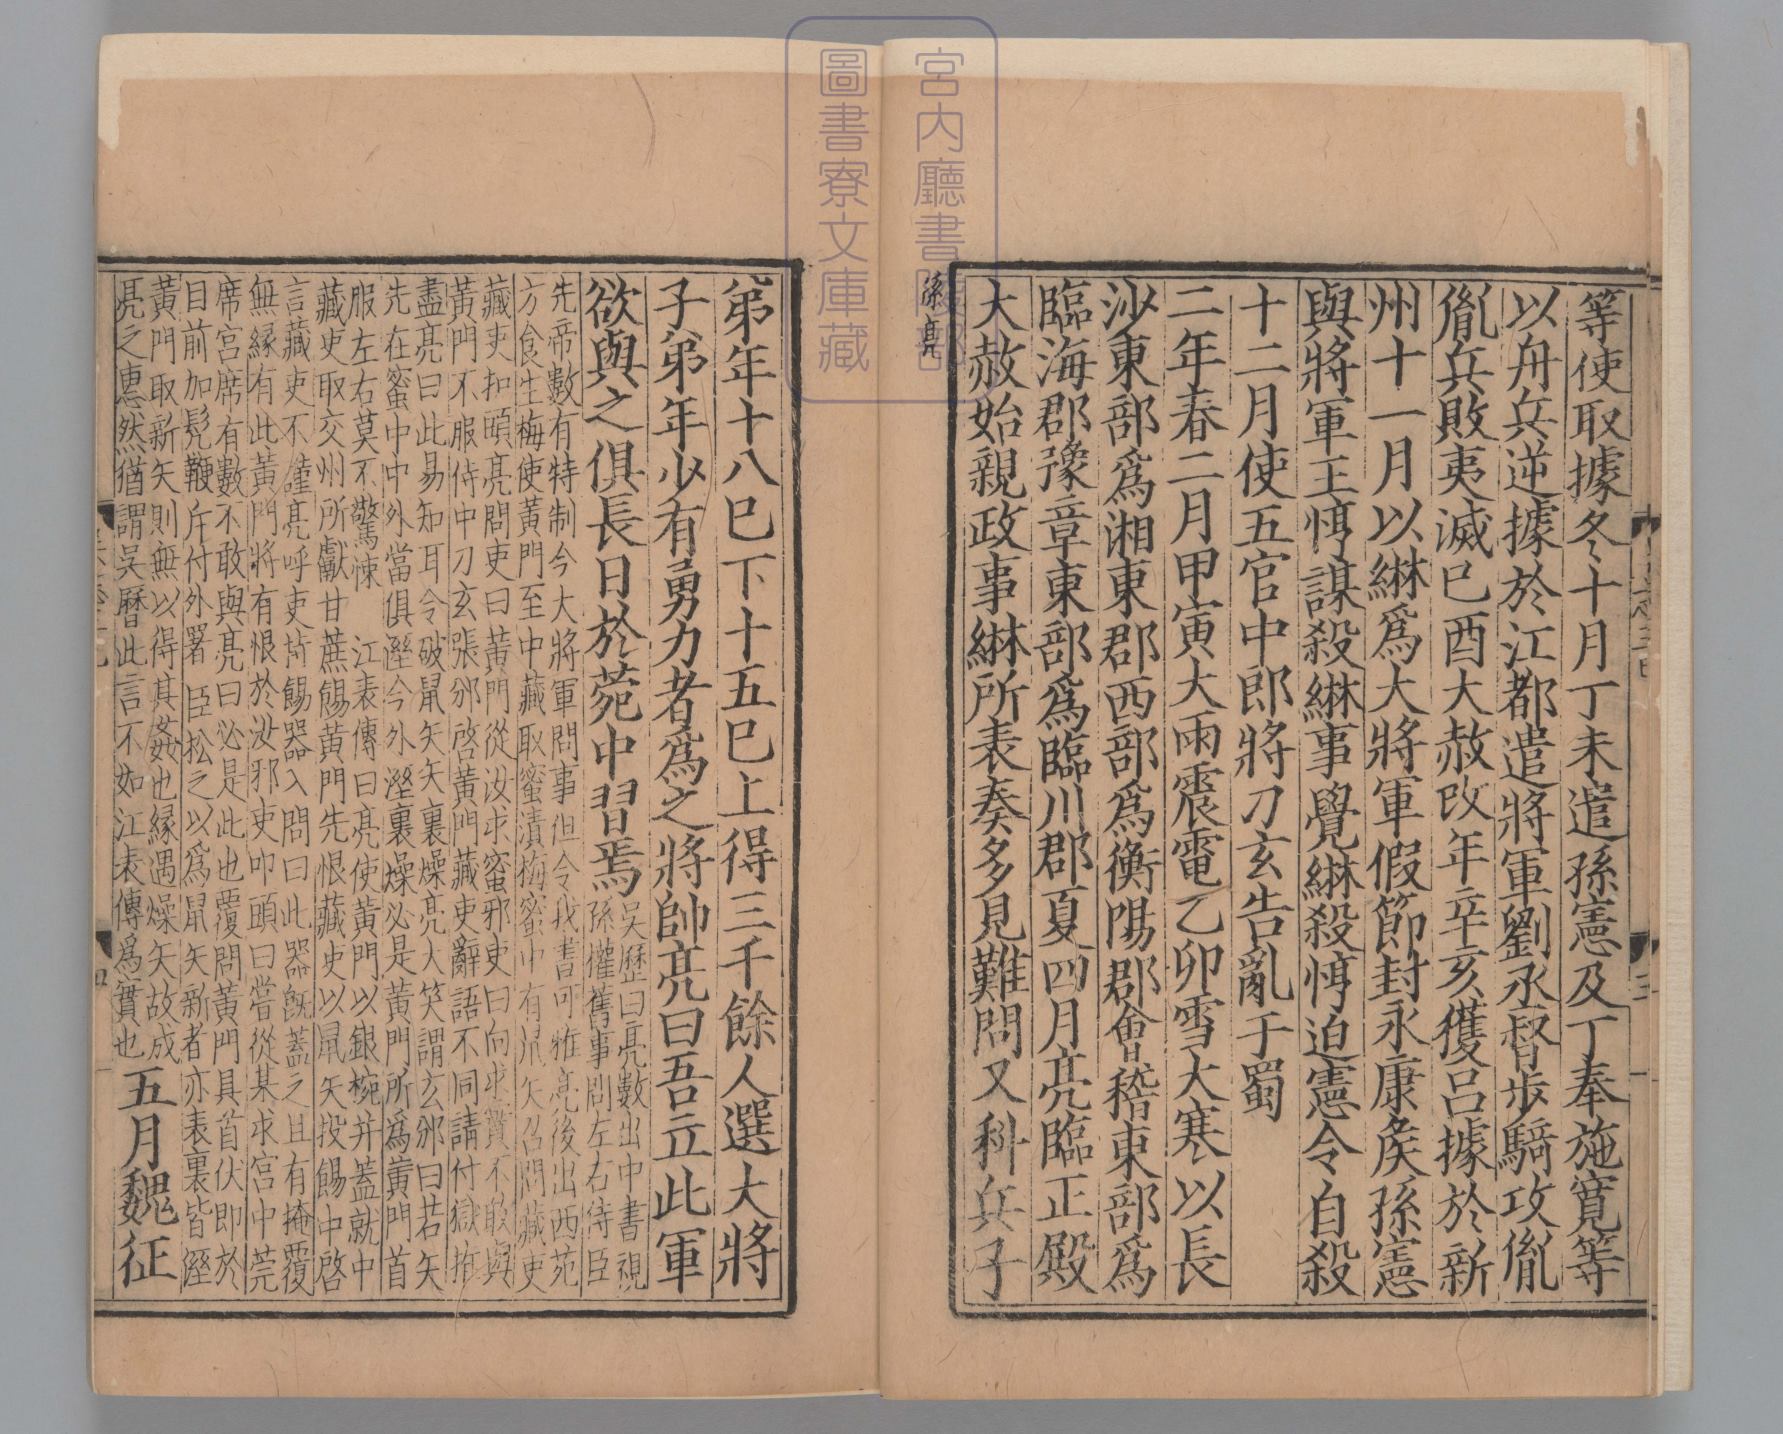 宮内廳書陵部
圖書寮文庫藏
等使取據冬十月丁未遣孫憲及丁奉施寬等
以舟兵逆據於江都遣將軍劉丞督步騎攻胤
胤兵敗夷滅巳酉大赦改年辛亥獲呂據於新
州十一月以綝爲大將軍假節封永康矦孫憲
與將軍王惇謀殺綝事覺綝殺惇迫憲令自殺
十二月使五官中郎將刀玄告亂于蜀
二年春二月甲寅大雨震電乙卯雪大寒以長
沙東部爲湘東郡西部爲衡陽郡會稽東部爲
臨海郡豫章東部爲臨川郡夏四月亮臨正殿
大赦始親政事綝所表奏多見難問又科兵子
孫亮
弟年十八巳下十五巳上得三千餘人選大將
子弟年少有勇力者爲之將帥亮曰吾立此軍
欲與之俱長日於苑中習焉
吳歷曰亮數出中書視
孫權舊事問左右侍臣
先帝數有特制今大將軍問事但令我書可雅亮後出西苑
方食生梅使黃門至中藏取蜜漬梅蜜中有鼠矢召問藏吏
藏吏扣頭亮問吏曰黃門從汝求蜜邪吏曰向求實不敢與
黃門不服侍中刀玄張邠啓黃門藏吏辭語不同請付獄推
盡亮曰此易知耳令破鼠矢矢裏燥亮大笑謂玄邠曰若矢
先在蜜中中外當俱溼今外溼裏燥必是黃門所爲黃門首
服左右莫不驚悚　江表傳曰亮使黃門以銀椀并蓋就中
藏吏取交州所獻甘蔗餳黃門先恨藏吏以鼠矢投餳中啓
言藏吏不謹亮呼吏持餳器入問曰此器旣蓋之且有掩覆
無緣有此黃門將有恨於汝邪吏叩頭曰嘗從某求宮中莞
席宮席有數不敢與亮曰必是此也覆問黃門具首伏即於
目前加髠鞭斥付外署　臣松之以爲鼠矢新者亦表裏皆溼
黃門取新矢則無以得其姦也緣遇燥矢故成
亮之惠然猶謂吳曆此言不如江表傳爲實也
五月魏征